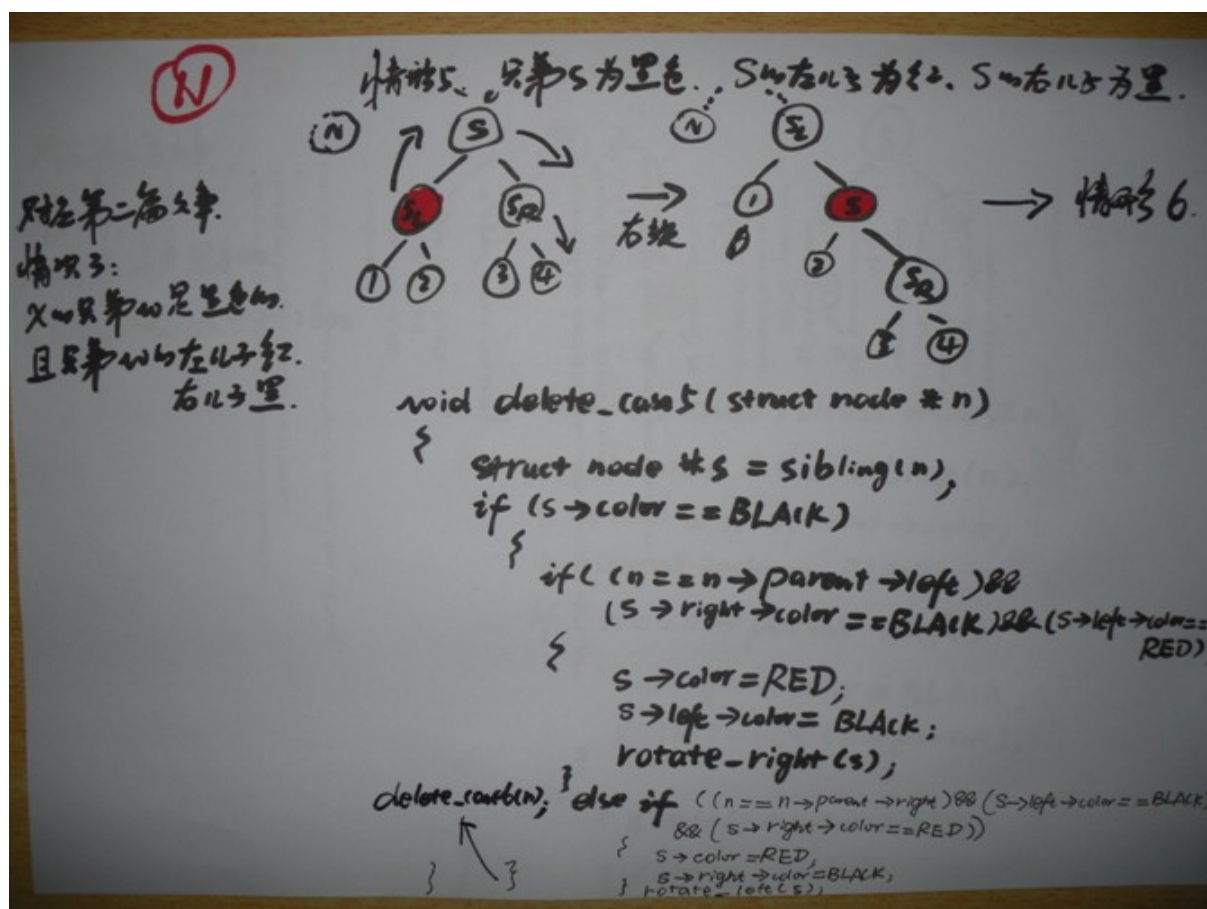 N
情形5、兄弟S为黑色、S的左儿子为红、S的右儿子为黑.
N S
SL SR
1 2 3 4
右旋
N SL
1 S
2 SR
3 4
情形6.
对应第二篇文章.
情况3:
X的兄弟w是黑色的.
且兄弟w的左儿子红.
右儿子黑.
void delete_case5(struct node *n)
{
struct node *s = sibling(n);
if (s→color==BLACK)
{
if( (n==n→parent→left)&&
(s→right→color==BLACK)&&(s→left→color==
RED)
{
s→color=RED;
s→left→color=BLACK;
rotate_right(s);
delete_case6(n); } else if ((n==n→parent→right)&&(s→left→color==BLACK)
&&(s→right→color==RED))
{ s→color=RED;
s→right→color=BLACK;
} } } rotate_left(s);